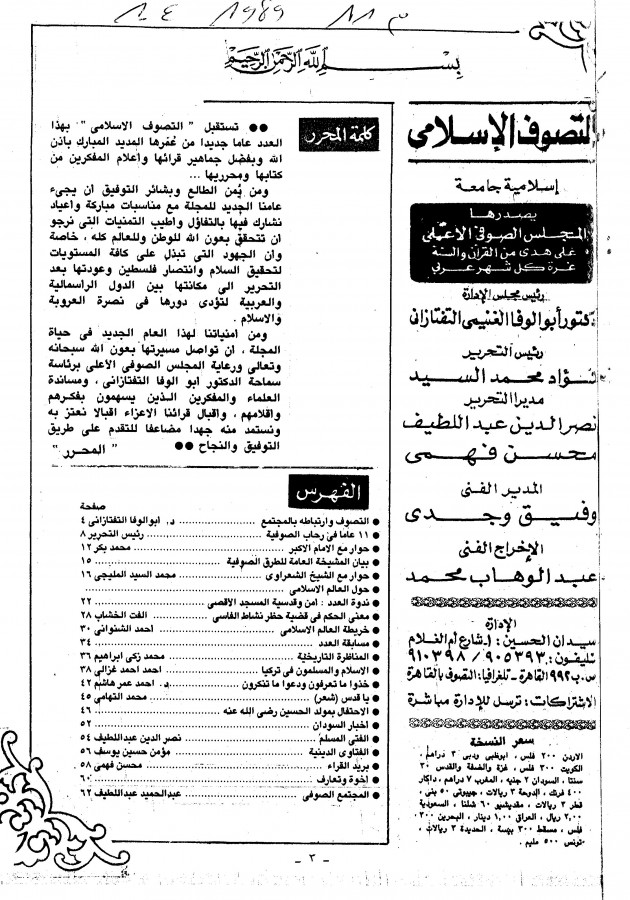 م ١١ ١٩٨٩ ١٠٤
بسم الله الرحمن الرحيم
لتصوف الإسلامى
إسلامية جامعة
يصدرها
المجلس الصوفى الأعلى
على هدى من القرآن والسنة
غرة كل شهر عربى
رئيس مجلس الإدارة
دكتور أبو الوفا الغنيمى التفتازانى
رئيس التحرير
فؤاد محمد السيد
مديرا التحرير
نصر الدين عبد اللطيف
محسن فهمى
المدير الفنى
وفيق وجدى
الإخراج الفنى
عبد الوهاب محمد
الإدارة
ميدان الحسين: ١ شارع أم الغلام
تليفون: ٩٠٥٣٩٣ / ٩١٠٣٩٨
ص.ب ٩٩٢ القاهرة - تلغرافيا: التصوف بالقاهرة
الاشتراكات: ترسل للإدارة مباشرة
سعر النسخة
الاردن ٢٠٠ فلس ، ابوظبى ودبى ٣ دراهم ،
الكويت ٣٠٠ فلس ، غزة والضفة والقدس ٣٠
سنتا ، السودان ٢ جنيه ، المغرب ٧ دراهم ، داكار
٤٠٠ فرنك ، الدوحة ٣ ريالات ، جيبوتى ٥٠ بنى ،
قطر ٣ ريالات ، مقديشيو ٦٠ شلنا ، السعودية
٢,٠٠ ريال ، العراق ١,٠٠ دينار ، البحرين ٣٠٠
فلس ، مسقط ٣٠٠ بيسة ، الحديدة ٣ ريالات ،
تونس ٥٠٠ مليم .
كلمة المحرر
●● تستقبل " التصوف الاسلامى " بهذا
العدد عاما جديدا من عمرها المديد المبارك بأذن
الله وبفضل جماهير قرائها وأعلام المفكرين من
كتابها ومحرريها ...
ومن يُمن الطالع وبشائر التوفيق أن يجىء
عامنا الجديد للمجلة مع مناسبات مباركة وأعياد
نشارك فيها بالتفاؤل واطيب التمنيات التى نرجو
ان تتحقق بعون الله للوطن وللعالم كله ، خاصة
وان الجهود التى تبذل على كافة المستويات
لتحقيق السلام وانتصار فلسطين وعودتها بعد
التحرير الى مكانتها بين الدول الراسمالية
والعربية لتؤدى دورها فى نصرة العروبة
والاسلام .
ومن أمنياتنا لهذا العام الجديد فى حياة
المجلة ، أن تواصل مسيرتها بعون الله سبحانه
وتعالى ورعاية المجلس الصوفى الأعلى برئاسة
سماحة الدكتور ابو الوفا التفتازانى ، ومساندة
العلماء والمفكرين الذين يسهمون بفكرهم
واقلامهم ، واقبال قرائنا الاعزاء اقبالا نعتز به
ونستمد منه جهدا مضاعفا للتقدم على طريق
التوفيق والنجاح ●● " المحرر "
الفهرس
صفحة
● التصوف وارتباطه بالمجتمع ........ د. ابوالوفا التفتازانى ٤
● ١١ عاما فى رحاب الصوفية ........ رئيس التحرير ٨
● حوار مع الامام الاكبر ........ محمد بكر ١٢
● بيان المشيخة العامة للطرق الصوفية ........ ١٥
● حوار مع الشيخ الشعراوى ........ محمد السيد المليجى ١٦
● حول العالم الاسلامى ........
● ندوة العدد : امن وقدسية المسجد الأقصى ........ ٢٢
● معنى الحكم فى قضية حظر نشاط الفاسى ........ الفت الخشاب ٢٨
● خريطة العالم الإسلامى ........ احمد الشنوانى ٣٠
● مسابقة العدد ........ ٣٤
● المناظرة التاريخية ........ محمد زكى ابراهيم ٣٦
● الاسلام والمسلمون فى تركيا ........ احمد احمد غزالى ٣٨
● خذوا ما تعرفون ودعوا ما تنكرون ........ د. احمد عمر هاشم ٤٢
● يا قدس (شعر) ........ محمد التهامى ٤٥
● الاحتفال بمولد الحسين رضى الله عنه ........ ٤٦
● أخبار السودان ........ ٥٢
● الفتى المسلم ........ نصر الدين عبداللطيف ٥٤
● الفتاوى الدينية ........ مؤمن حسين يوسف ٥٦
● بريد القراء ........ محسن فهمى ٥٨
● أخوة وتعارف ........ ٦٠
● المجتمع الصوفى ........ عبدالحميد عبداللطيف ٦٢
- ٣ -